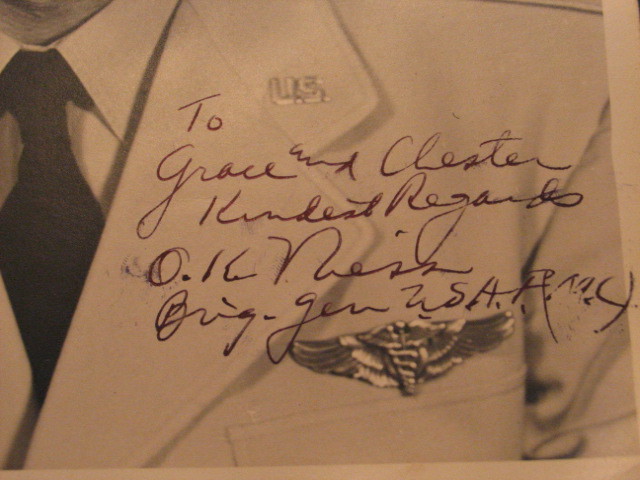 U.S.
To
Grace and Chester
Kindest Regards
O.K. Niess
Brig. Gen USAF (MC)